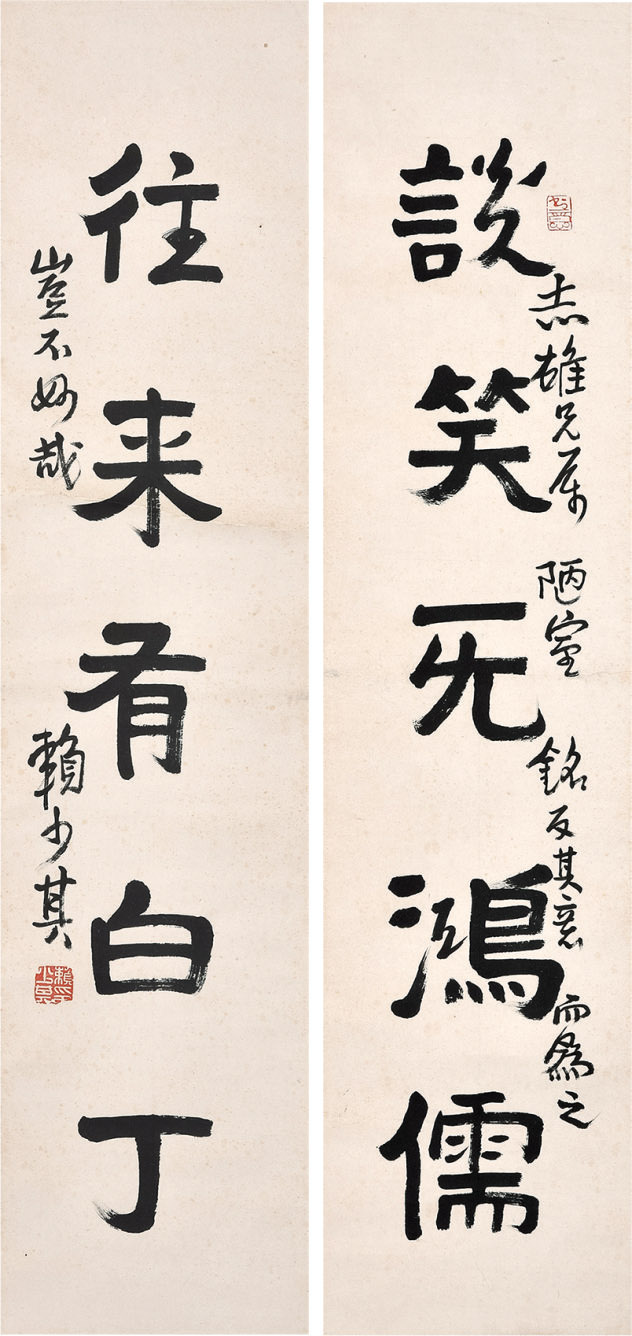 談笑无鴻儒
志雄兄属 陋室銘反其意而為之
往来有白丁
豈不妙哉 賴少其